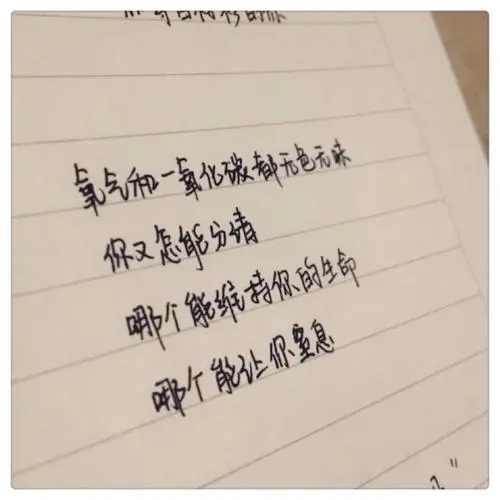 氧气和一氧化碳都无色无味
你又怎能分清
哪个能维持你的生命
哪个能让你窒息